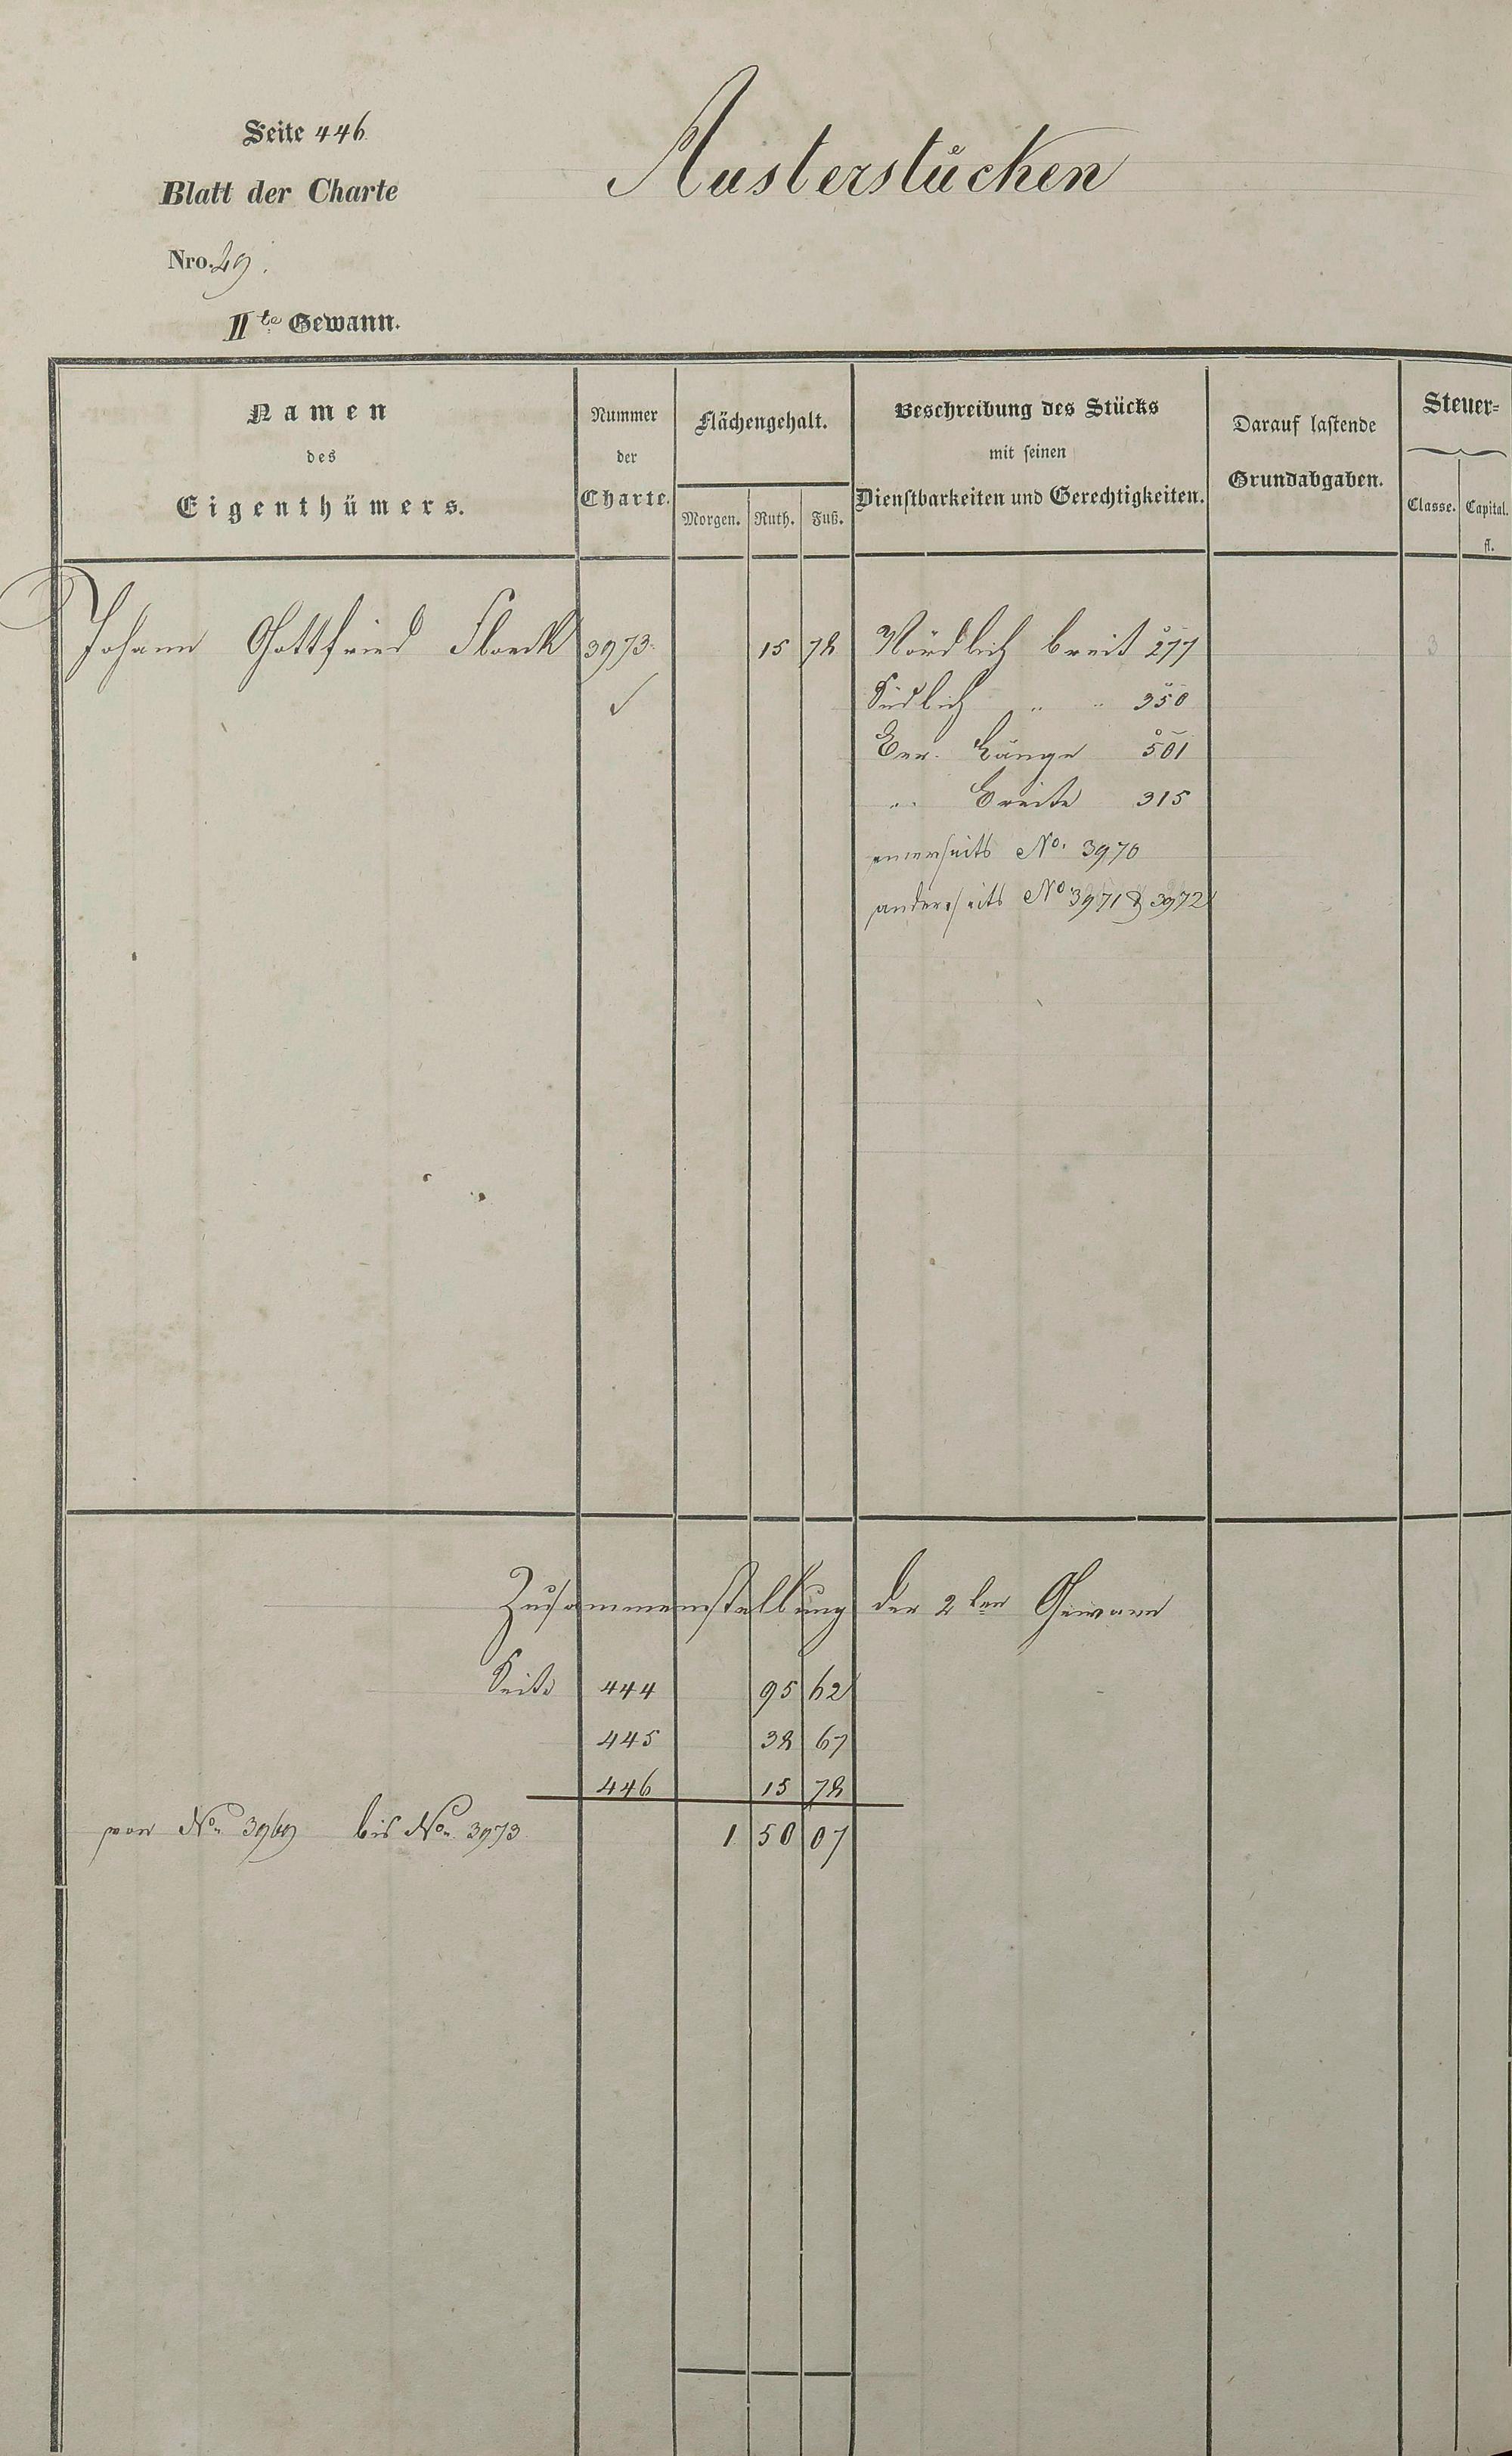 Seite 446
Austerstücken
Blatt der Charte
Nro. 29.
IIte Gewann.
Namen des Eigenthümers.
Nummer der Charte.
Flächengehalt.
Morgen. Ruth. Fuß.
Beschreibung des Stücks
mit seinen
Dienstbarkeiten und Gerechtigkeiten.
Darauf lastende
Grundabgaben.
Steuer=
Classe. Capital.
fl.
Johann Gottfried Floeck 3973. 15 78 Nördlich breit 277 3
Südlich " " 350
Ver. Länge 501
" Breite 315
einerseits No. 3970
anderseits No 3971 & 3972
Zusammenstellung der 2ten Gewann
Seite 444 95 62
445 38 67
446 15 78
von No. 3969 bis No. 3973 1 50 07